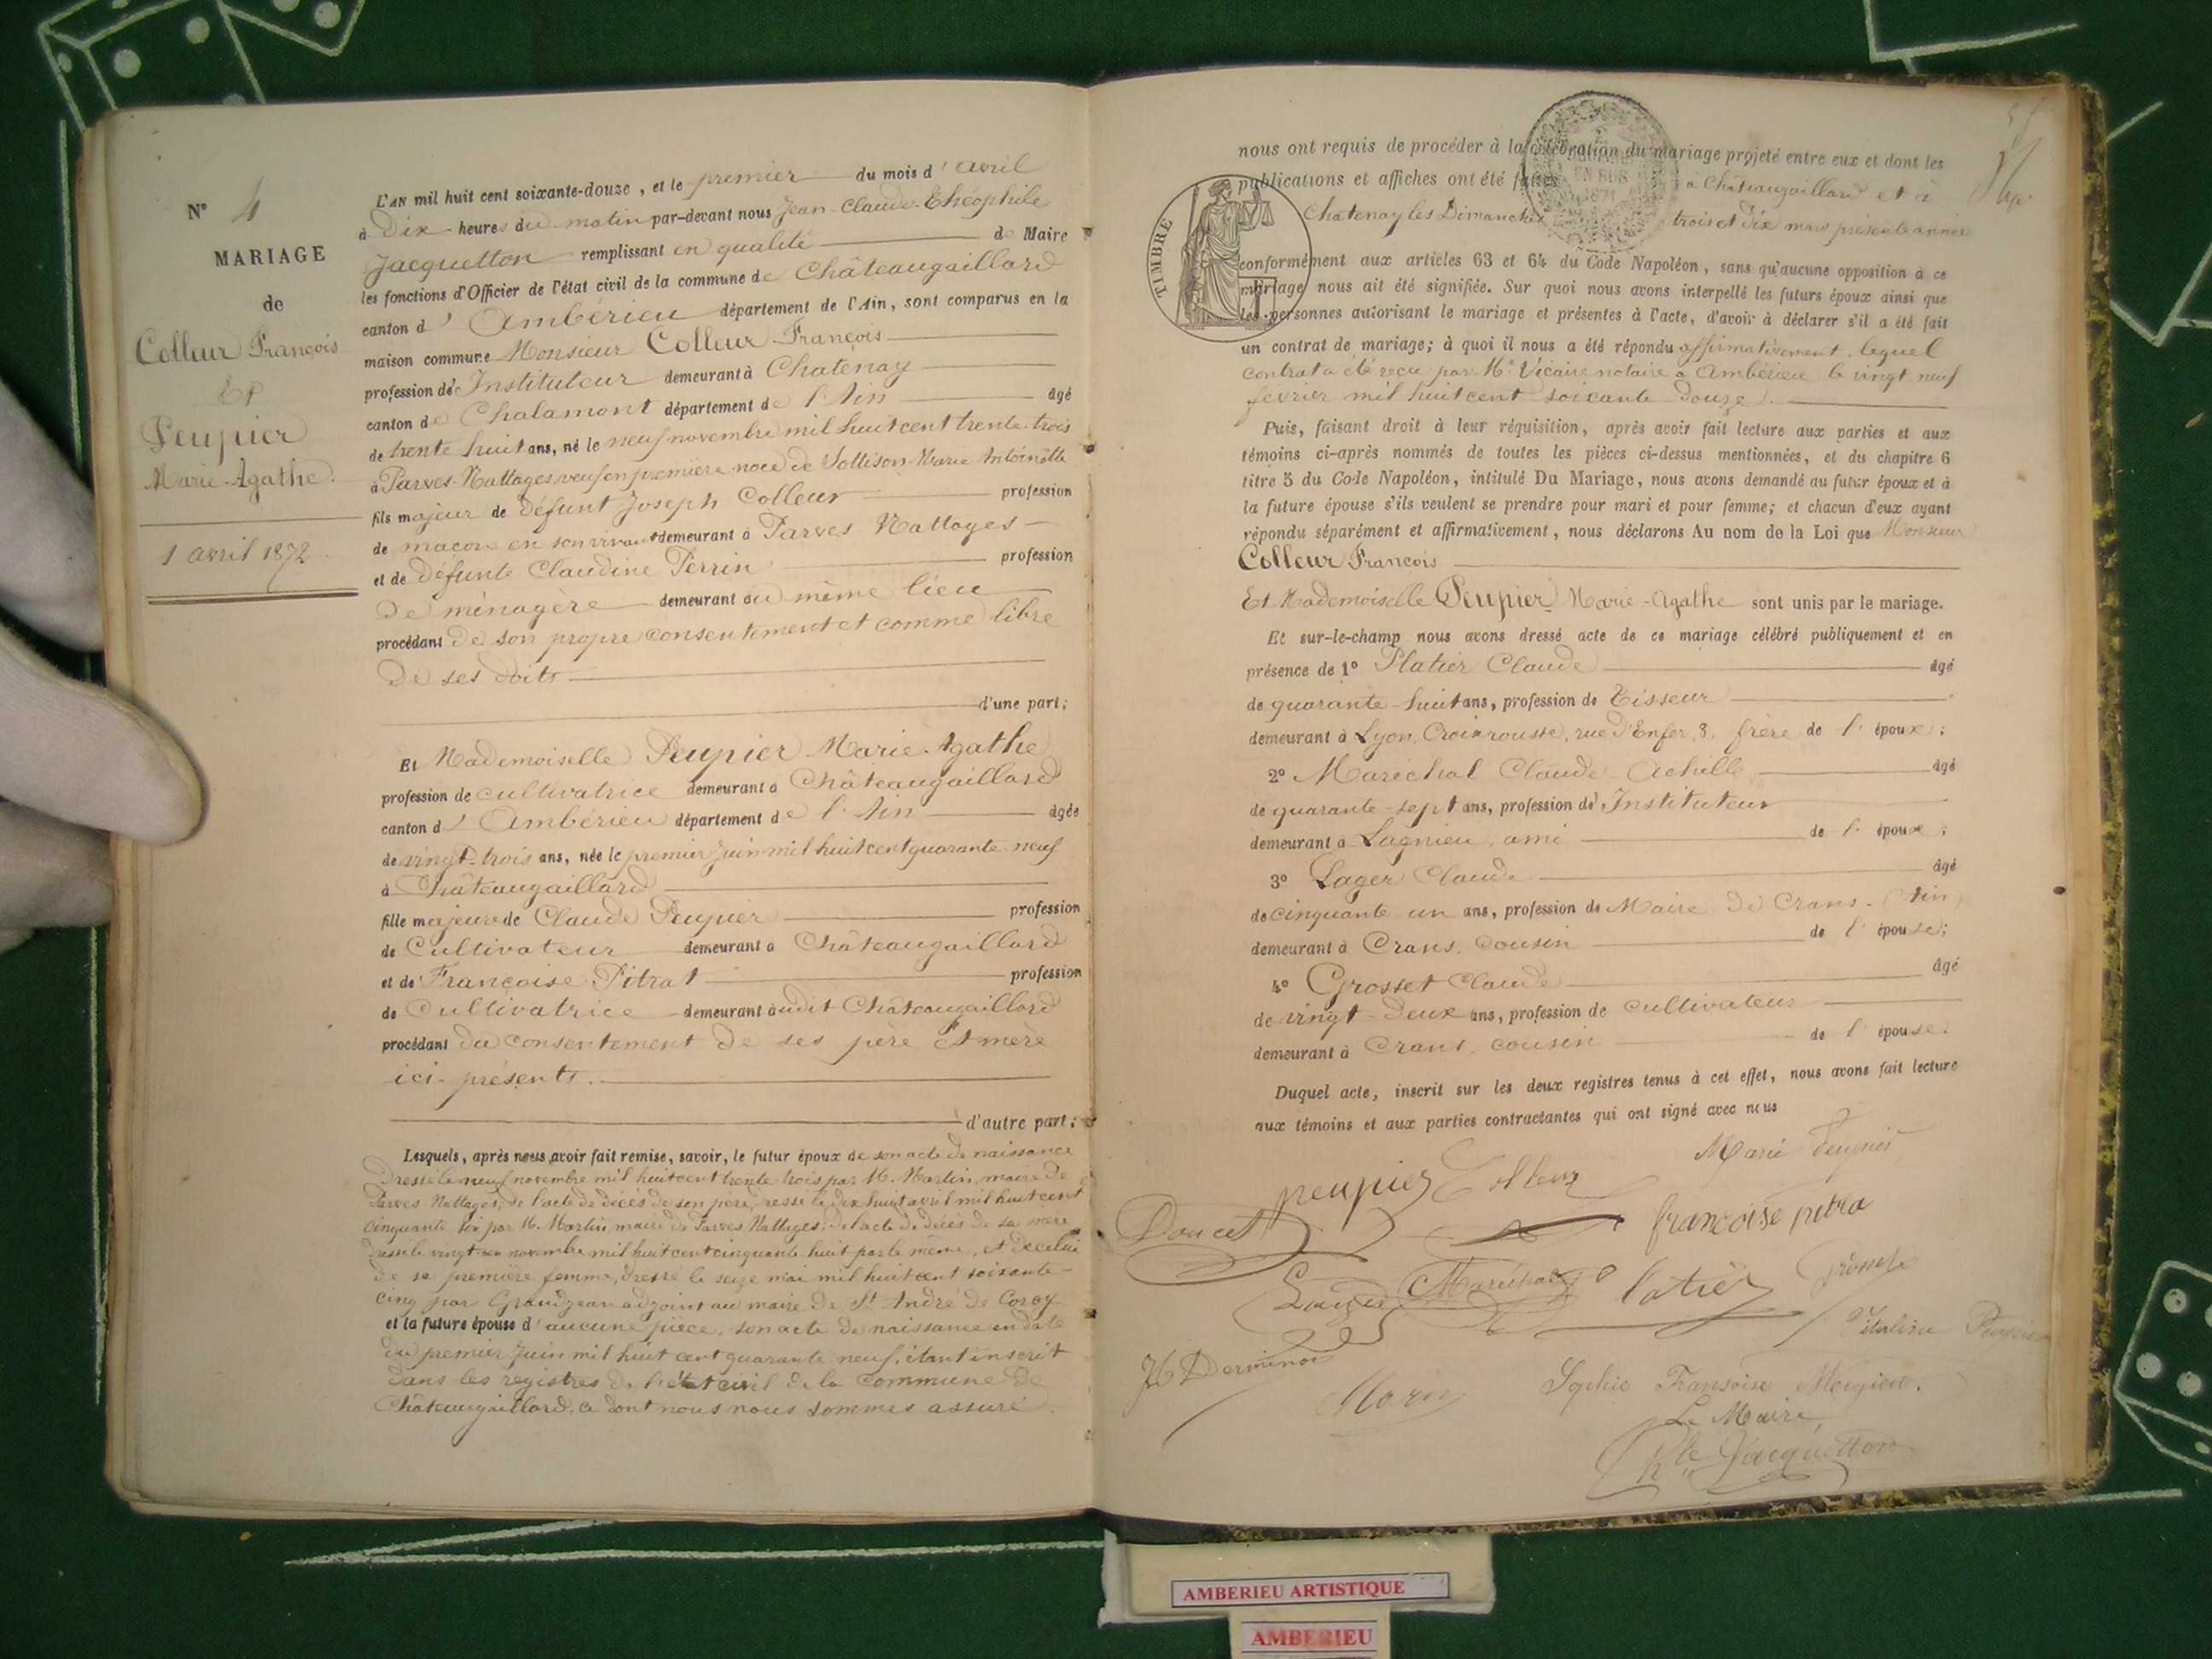 N° 4
MARIAGE
de
Colleur François
Et
Peupier
Marie-Agathe.
1 avril 1872.
L'AN mil huit cent soixante-douze, et le premier du mois d'avril
à Dix heures du matin par-devant nous Jean-Claude-Théophile
Jacquetton remplissant en qualité de Maire
les fonctions d'Officier de l'état civil de la commune de Châteaugaillard
canton d'Ambérieu département de l'Ain, sont comparus en la
maison commune Monsieur Colleur François
profession d'Instituteur demeurant à Chatenay
canton de Chalamont département de l'Ain âgé
de trente huit ans, né le neuf novembre mil huit cent trente trois
à Parves-Nattages, veuf en première noce de Sottison Marie Antoinette
fils majeur de Défunt Joseph Colleur profession
de maçon en son vivant demeurant à Parves Nattages
et de Défunte Claudine Perrin profession
De ménagère demeurant au même lieu
procédant de son propre consentement et comme libre
De ses doits
d'une part;
Et Mademoiselle Peupier Marie-Agathe
profession de cultivatrice demeurant à Châteaugaillard
canton d'Ambérieu département de l'Ain âgée
de vingt-trois ans, née le premier juin mil huit cent quarante neuf
à Châteaugaillard
fille majeure de Claude Peupier profession
de Cultivateur demeurant à Châteaugaillard
et de Françoise Pitrat profession
de Cultivatrice demeurant audit Châteaugaillard
procédant du consentement de ses père et mère
ici-présents.
d'autre part;
Lesquels, après nous avoir fait remise, savoir, le futur époux de son acte de naissance
Dressé le neuf novembre mil huit cent trente trois par M. Martin, maire de
Parves Nattages, de l'acte de décès de son père, dressé le dix huit avril mil huit cent
cinquante six par M. Martin, maire de Parves Nattages; de l'acte de décès de sa mère
dressé le vingt novembre mil huit cent cinquante huit par le même, et de celui
de sa première femme, dressé le seize mai mil huit cent soixante-
cinq par Grandjean adjoint au maire de St André de Corcy
et la future épouse d'aucune pièce, son acte de naissance en date
du premier juin mil huit cent quarante neuf, étant inscrit
dans les registres de l'état civil de la commune de
Châteaugaillard, ce dont nous nous sommes assuré.
nous ont requis de procéder à la célébration du mariage projeté entre eux et dont les
publications et affiches ont été faites à Châteaugaillard et à
Châtenay les Dimanches trois et dix mars présente année
TIMBRE
conformément aux articles 63 et 64 du Code Napoléon, sans qu'aucune opposition à ce
mariage nous ait été signifiée. Sur quoi nous avons interpellé les futurs époux ainsi que
les personnes autorisant le mariage et présentes à l'acte, d'avoir à déclarer s'il a été fait
un contrat de mariage; à quoi il nous a été répondu affirmativement, lequel
contrat a été reçu par Me Vicaire notaire à Ambérieu le vingt neuf
février mil huit cent soixante douze.
Puis, faisant droit à leur réquisition, après avoir fait lecture aux parties et aux
témoins ci-après nommés de toutes les pièces ci-dessus mentionnées, et du chapitre 6
titre 5 du Code Napoléon, intitulé Du Mariage, nous avons demandé au futur époux et à
la future épouse s'ils veulent se prendre pour mari et pour femme; et chacun d'eux ayant
répondu séparément et affirmativement, nous déclarons Au nom de la Loi que Monsieur
Colleur François
Et Mademoiselle Peupier Marie-Agathe sont unis par le mariage.
Et sur-le-champ nous avons dressé acte de ce mariage célébré publiquement et en
présence de 1° Platier Claude âgé
de quarante-huit ans, profession de Tisseur
demeurant à Lyon, Croix rousse, rue d'Enfer, 8, frère de l'époux;
2° Maréchal Claude Achille âgé
de quarante-sept ans, profession d'Instituteur
demeurant à Lagnieu, ami de l'époux;
3° Lager Claude âgé
de cinquante un ans, profession de Maire de Crans. (Ain)
demeurant à Crans, cousin de l'épouse;
4° Grosset Claude âgé
de vingt-deux ans, profession de cultivateur
demeurant à Crans, cousin de l'épouse.
Duquel acte, inscrit sur les deux registres tenus à cet effet, nous avons fait lecture
aux témoins et aux parties contractantes qui ont signé avec nous
Marie Peupier
peupier Colleur
Doucet francoise pitra
Maréchal
Morin Sophie Fransoise
Le Maire,
Jacquetton
AMBERIEU ARTISTIQUE
AMBERIEU